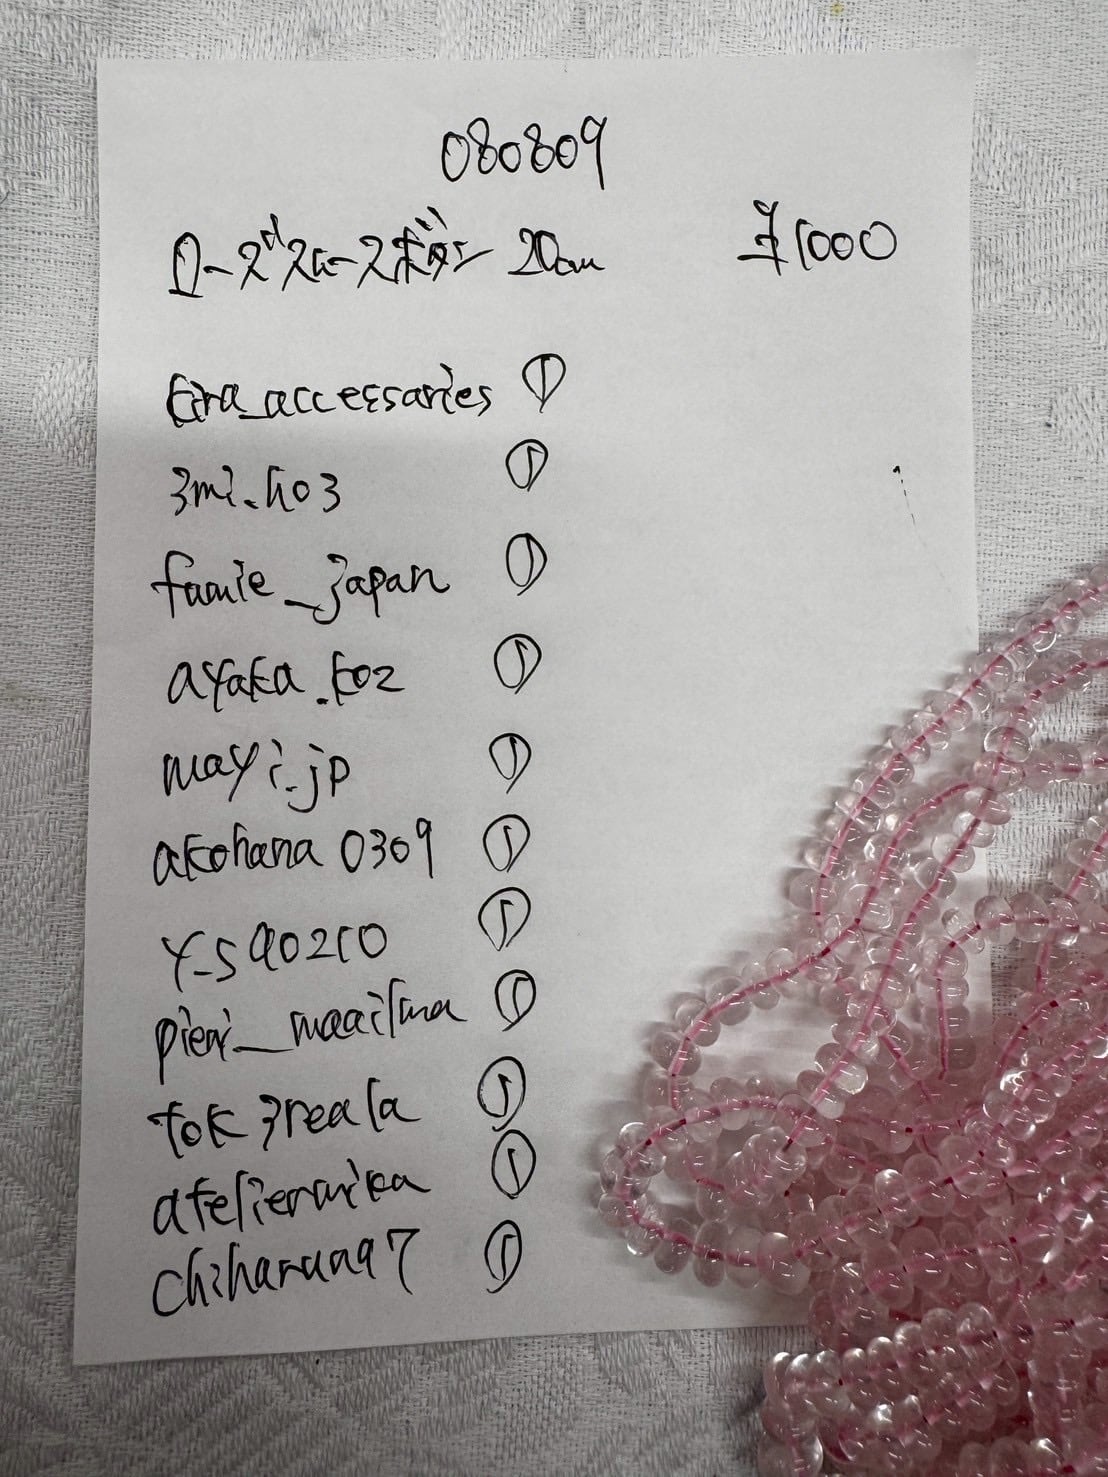 080809
ローズクォーツボタン 20cm ¥1000
kira_accessaries ①
3mi.ho3 ①
famie_japan ①
ayaka.ko2 ①
mayi.jp ①
akohana0309 ①
y_s90210 ①
pieni_maailma ①
tok3reala ①
ateliermika ①
chiharuna97 ①